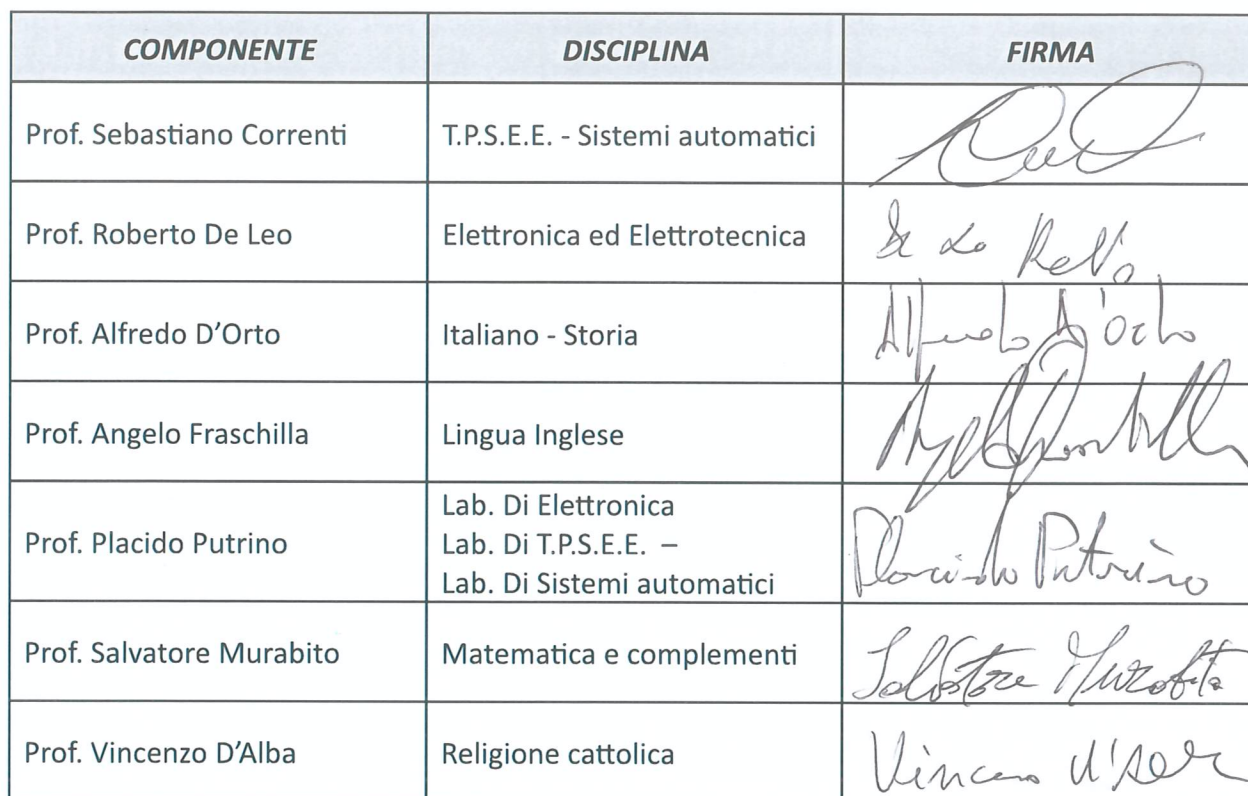 COMPONENTE DISCIPLINA FIRMA
Prof. Sebastiano Correnti T.P.S.E.E. - Sistemi automatici
Prof. Roberto De Leo Elettronica ed Elettrotecnica
Prof. Alfredo D'Orto Italiano - Storia Alfredo D'Orto
Prof. Angelo Fraschilla Lingua Inglese
Prof. Placido Putrino
Lab. Di Elettronica
Lab. Di T.P.S.E.E. –
Lab. Di Sistemi automatici
Placido Putrino
Prof. Salvatore Murabito Matematica e complementi Salvatore Murabito
Prof. Vincenzo D'Alba Religione cattolica